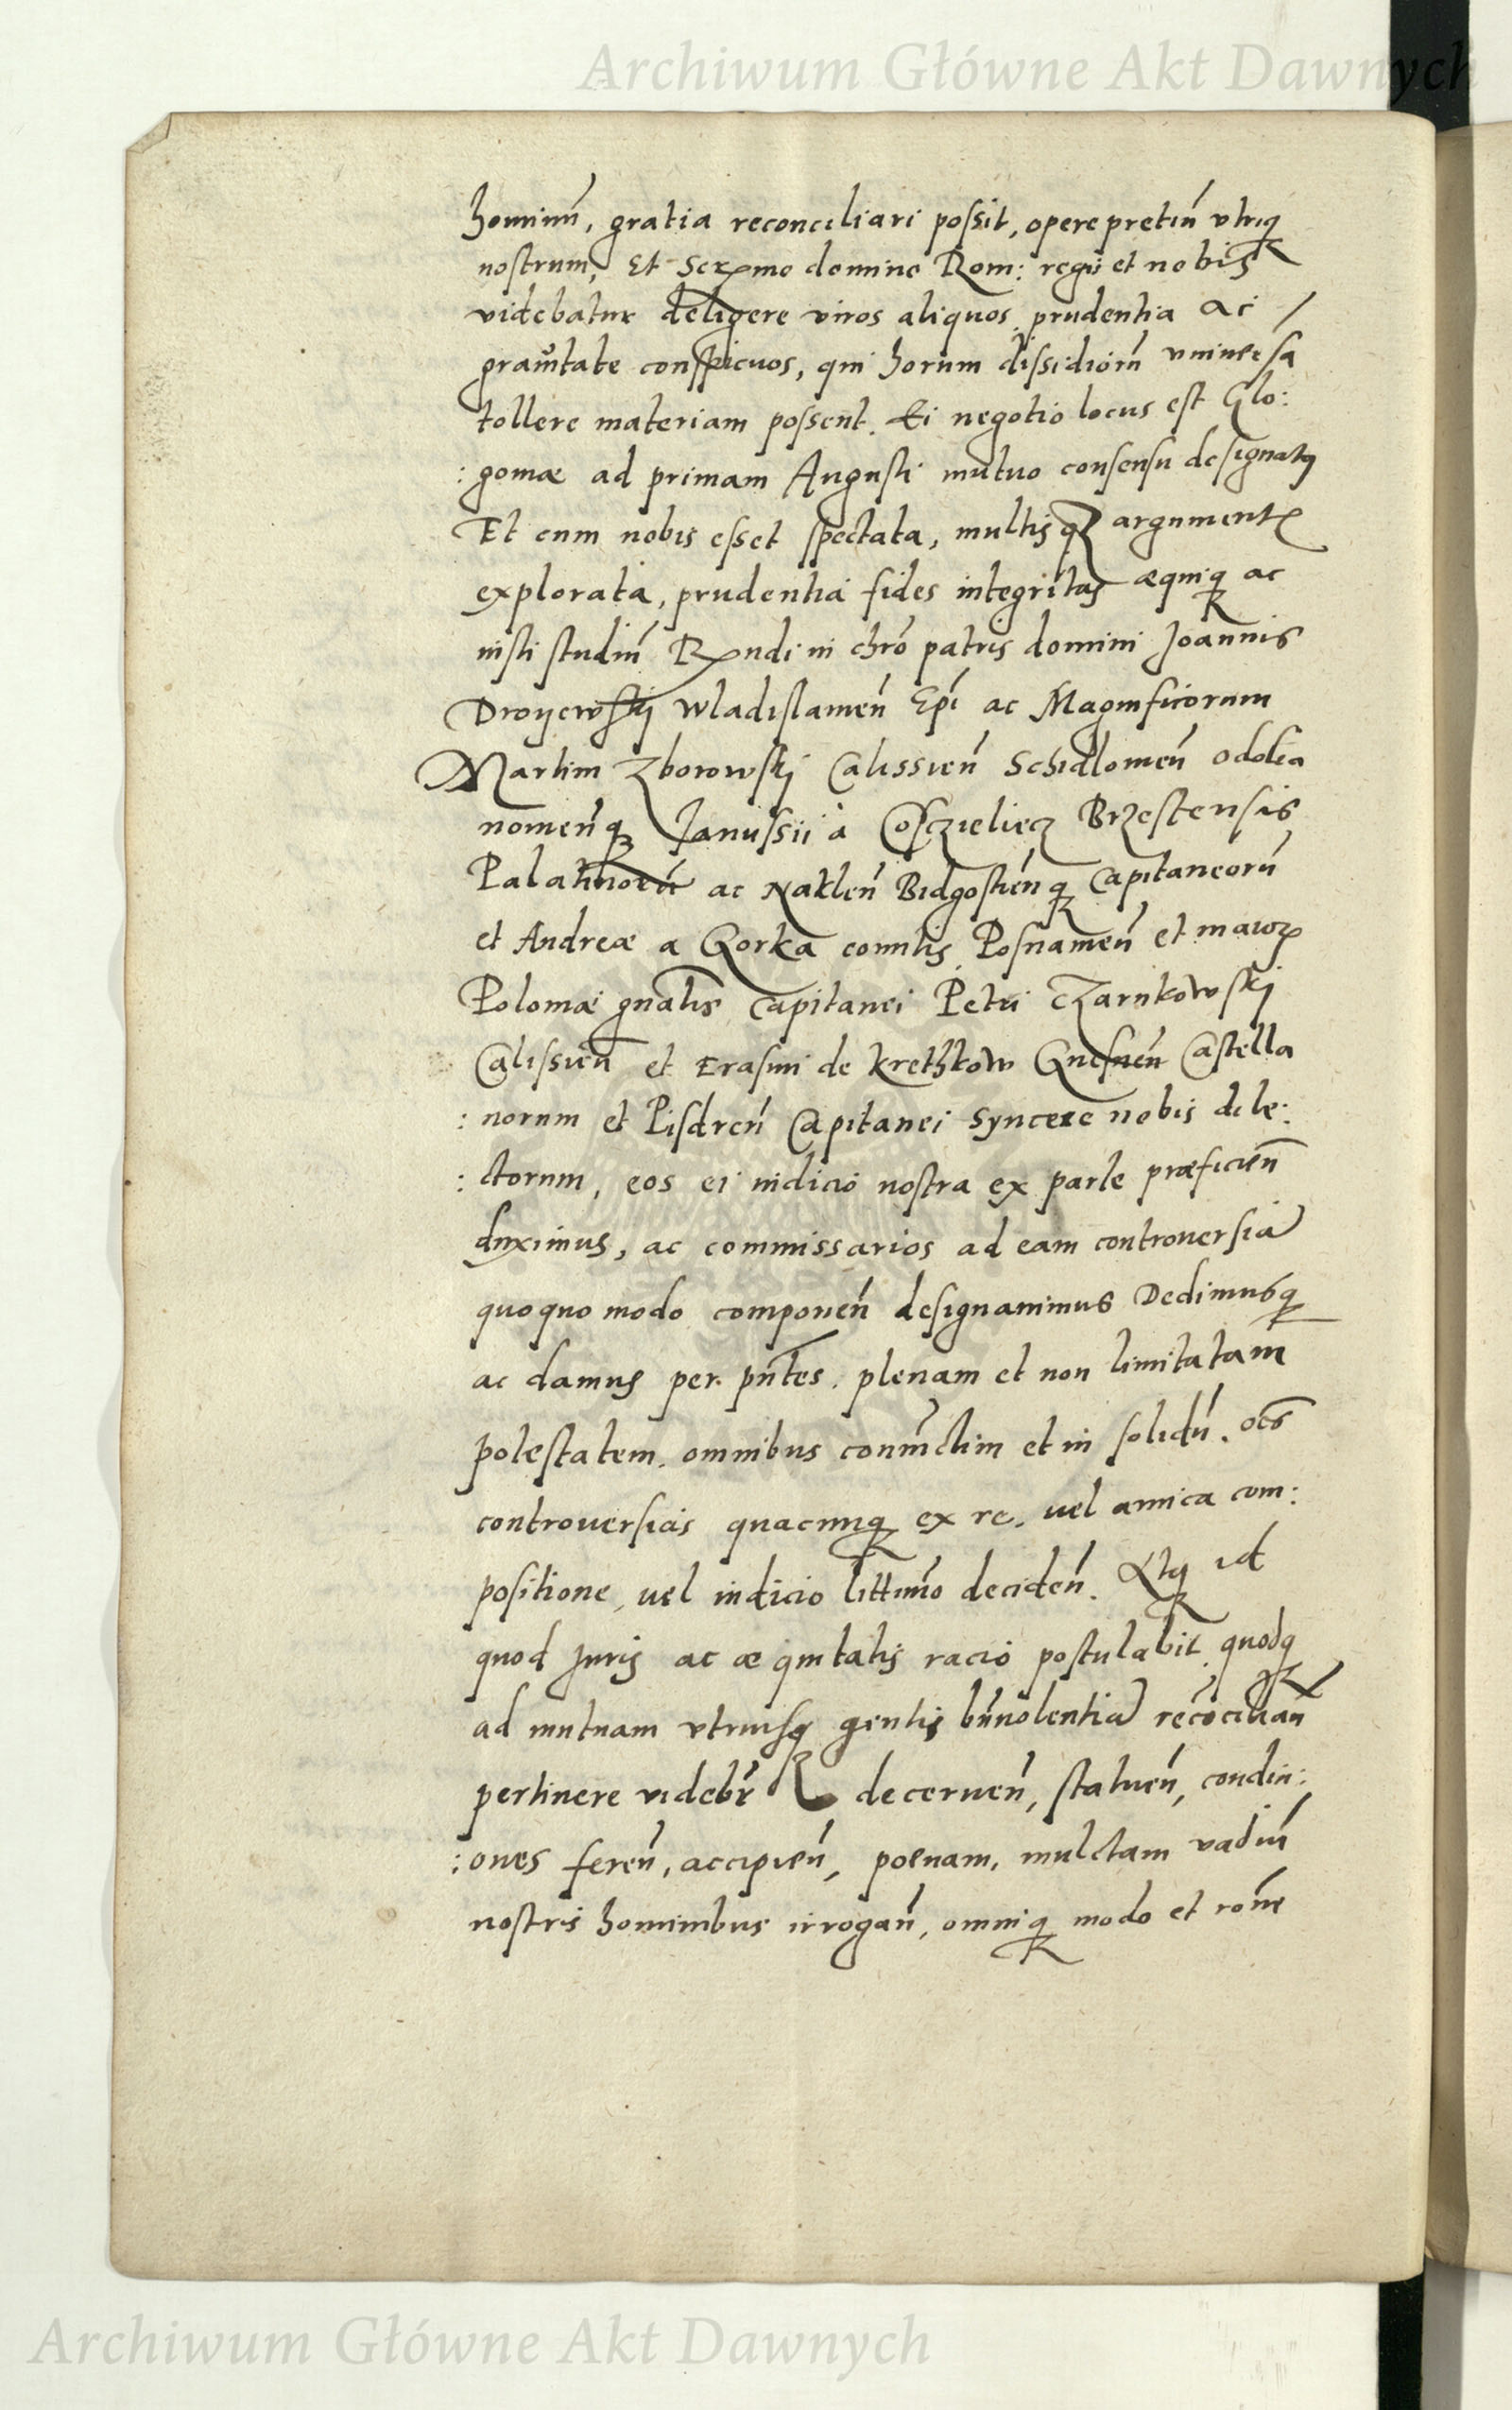 Archiwum Główne Akt Dawnych
hominū, gratia reconciliari possit, operepretiū utriq
nostrum, Et Sermo domino Rom: regii et nobis
videbatur deligere viros aliquos, prudentia ac /
gravitate conspicuos, qui horum dissidiorū universa
tollere materiam possent. Ei negotio locus est Glo:
: goviæ ad primam Augusti mutuo consensu designatq
Et cum nobis esset spectata, multisq argument
explorata, prudentia fides integritas æquiq ac
iusti studiū Rndi in chro patris domini Joannis
Droyewskij Wladislavień Epi ac Magnificorum
Martini Zborowskij Calissień Schidlovień Odola
novieńq Janussii à Cosczieliecz Brzestensis
Palatinorū ac Nakleń Bidgostieńq Capitaneorū
et Andreæ a Gorka comitis Posnanień et maior
Poloniæ gnalis Capitanei Petri Czarnkowskij
Calissień et Erasmi de Krethkow Gnesneń Castella
: norum et Pisdreń Capitanei syncere nobis dile:
: ctorum, eos ei iudicio nostra ex parte præficień
duximus, ac commissarios ad eam controversiā
quoquo modo componeń designavimus Dedimusq
ac damus per pntes, plenam et non limitatam
potestatem, omnibus coniūctim et in solidū, oēs
controversias quacunq ex re, vel amica com:
positione, vel iudicio littimo decideń. Utq id
quod Juris ac æquitatis racio postulabit, quodq
ad mutuam utriusq gentis bnvolentiā recōciliań
pertinere videbr decerneń, statueń, condin:
: ones fereń, accipień, poenam, mulctam vadiū
nostris hominibus irrogań, omniq modo et rone
Archiwum Główne Akt Dawnych